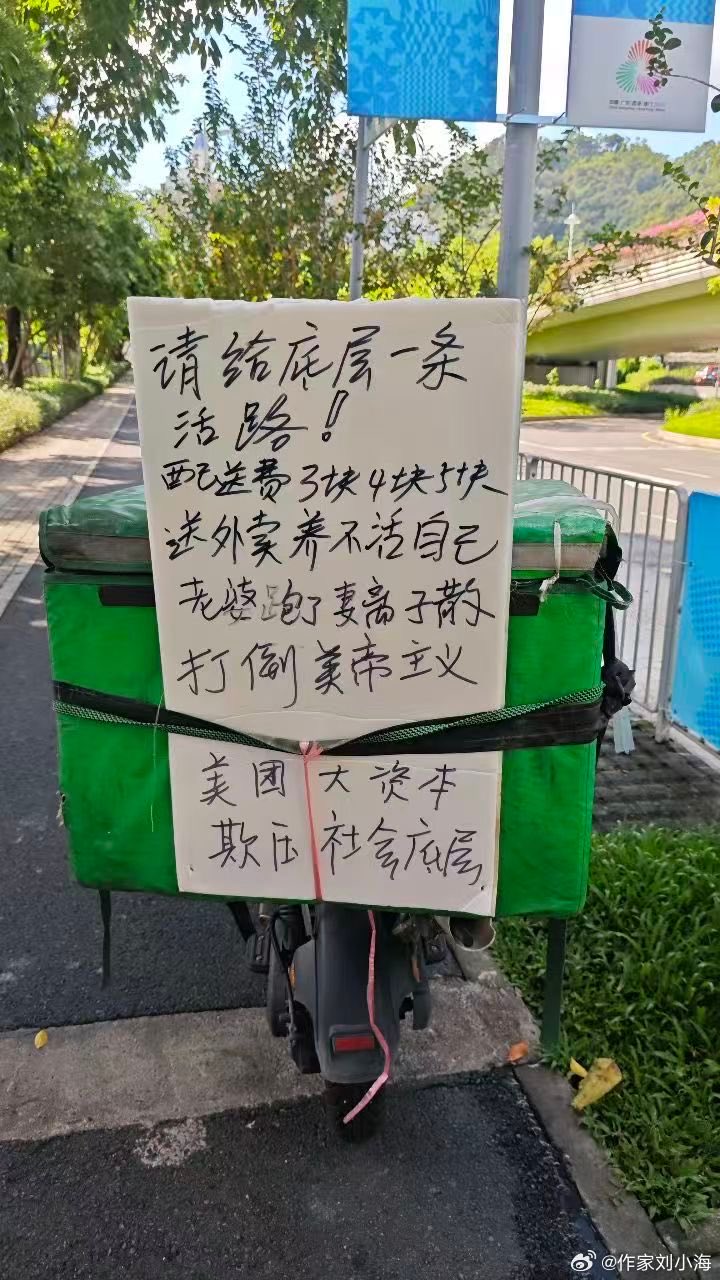 请给底层一条
活路！
配送费3块4块5块
送外卖养不活自己
老婆跑了妻离子散
打倒美帝主义
美团大资本
欺压社会底层
@作家刘小海